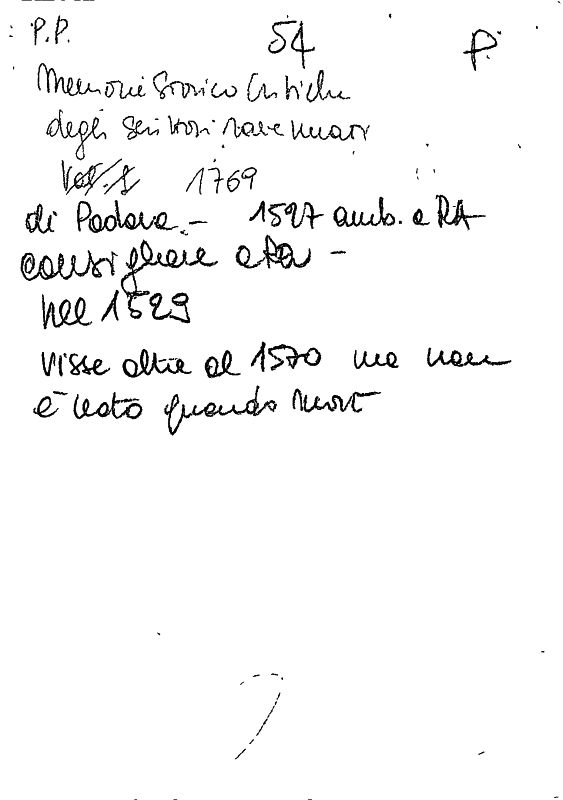 P.P. 54 P.
Memorie Storico Critiche
degli scrittori ravennati
Vol. I 1769
di Padova. - 1527 amb. a RA
consigliere a Ra -
nel 1529
visse oltre al 1570 ma non
è noto quando morì